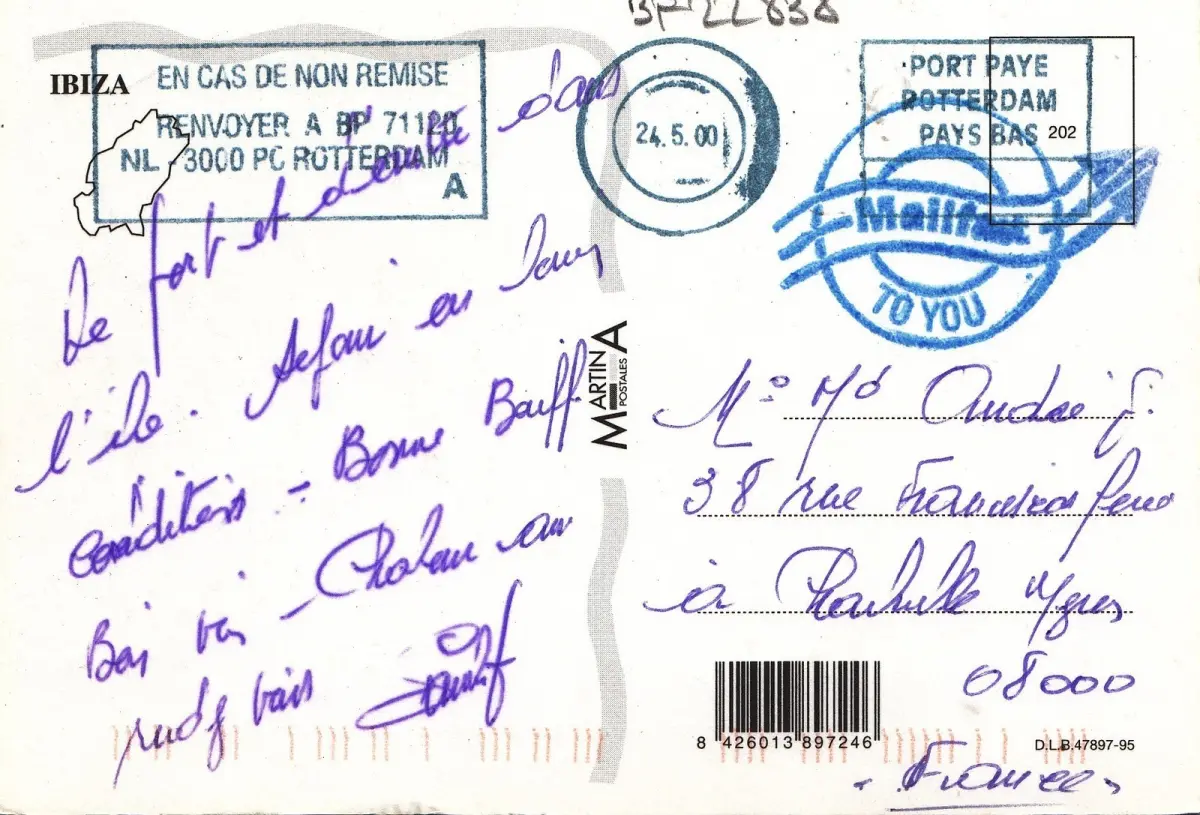 BP22838
IBIZA
EN CAS DE NON REMISE
RENVOYER A BP 71120
NL - 3000 PC ROTTERDAM
A
24.5.00
PORT PAYE
ROTTERDAM
PAYS BAS
202
Mailfast
TO YOU
Le fort et dans
l'île. en
conditions - Bonne Bouff
Bon vin - Chaleur au
rendez vous
MARTINA
POSTALES
André J.
38 rue
à Charleville Mzres
08000
France
8 426013 897246
D.L.B.47897-95